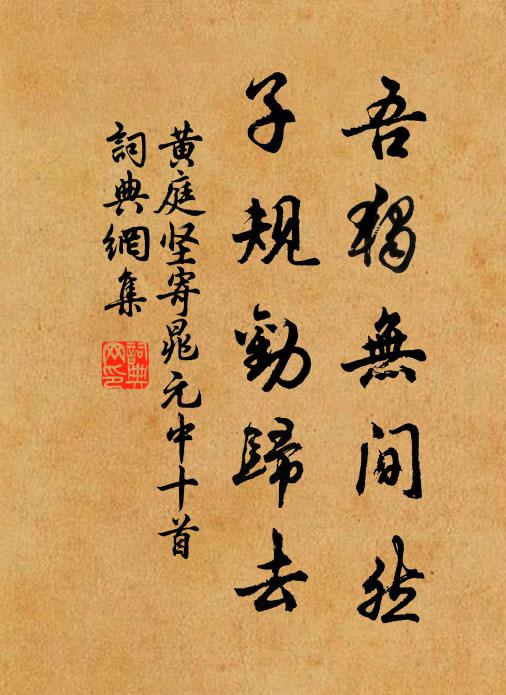 吾獨無間然
子規勸歸去
黄庭坚寄晁元中十首
詞典網集
詞典網印